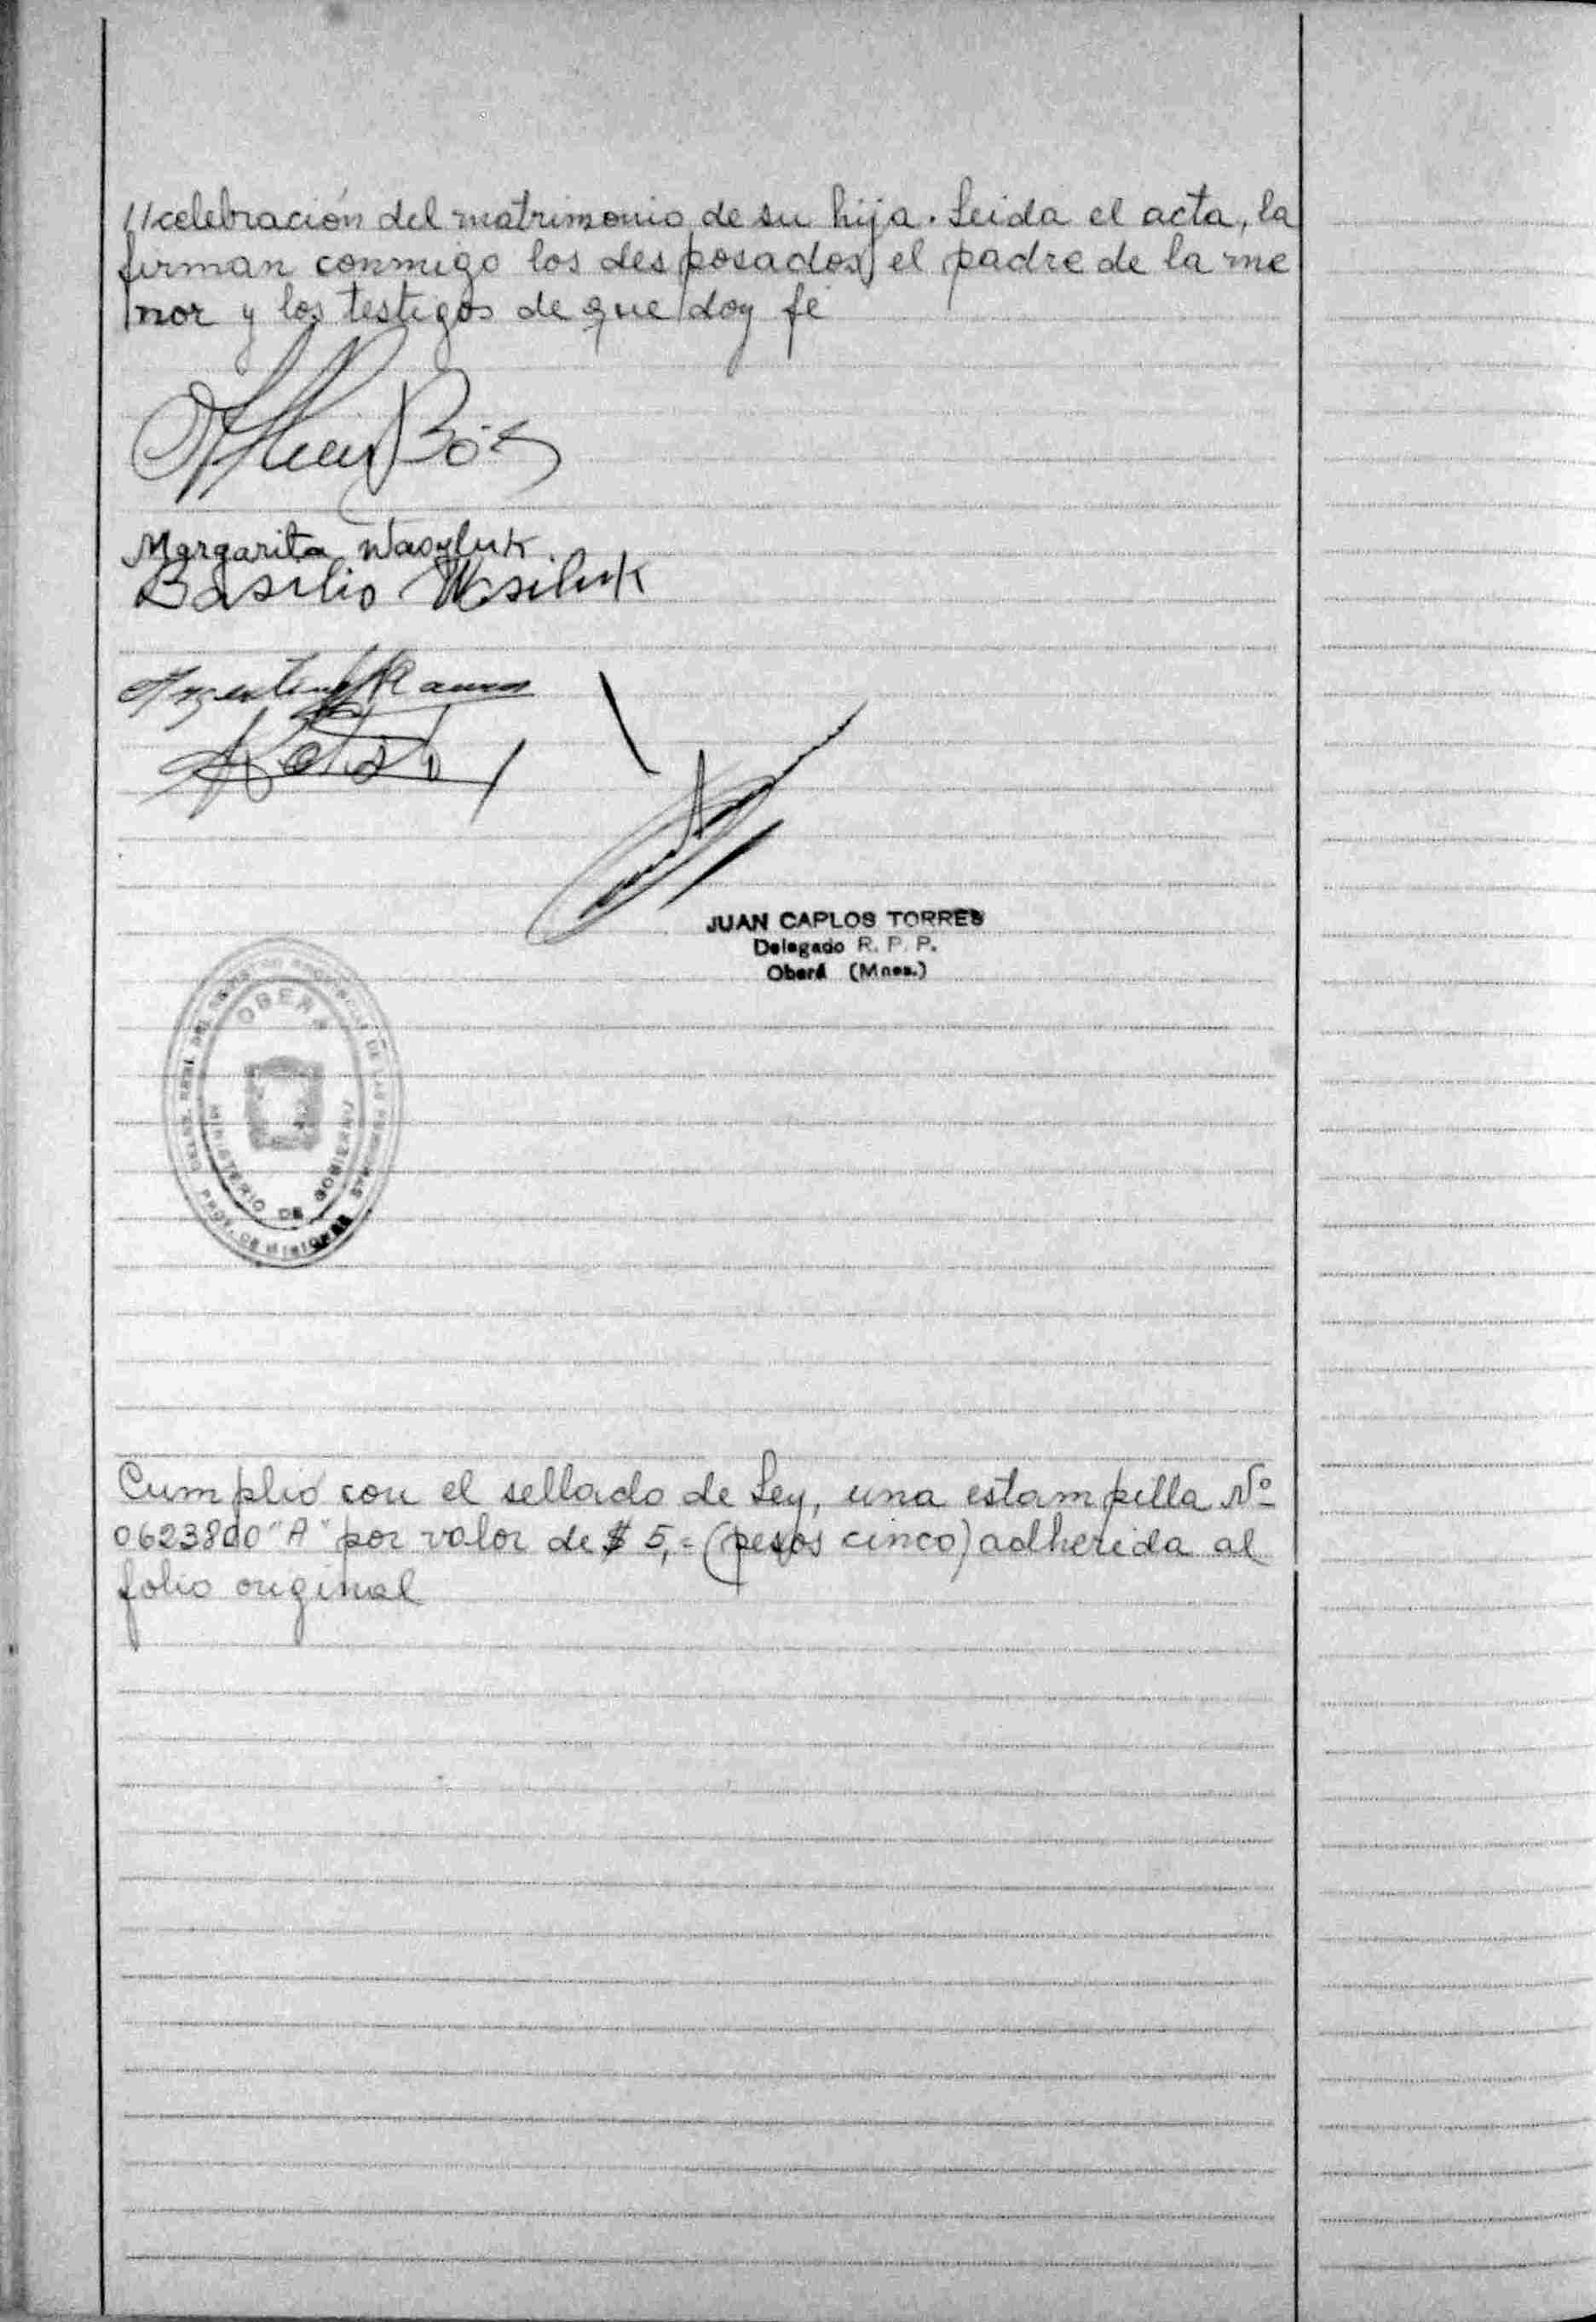 //celebración del matrimonio de su hija. Leida el acta, la
firman conmigo los desposados, el padre de la me
nor y los testigos de que doy fé
Margarita Wasyluk.
Basilio Wasiluk
JUAN CARLOS TORRES
Delegado R. P. P.
Oberá (Mnes.)
OBERA
MINISTERIO DE GOBIERNO
PROV. DE MISIONES
Cumplió con el sellado de Ley, una estampilla Nº
0623800 "A" por valor de $ 5,= (pesos cinco) adherida al
folio original